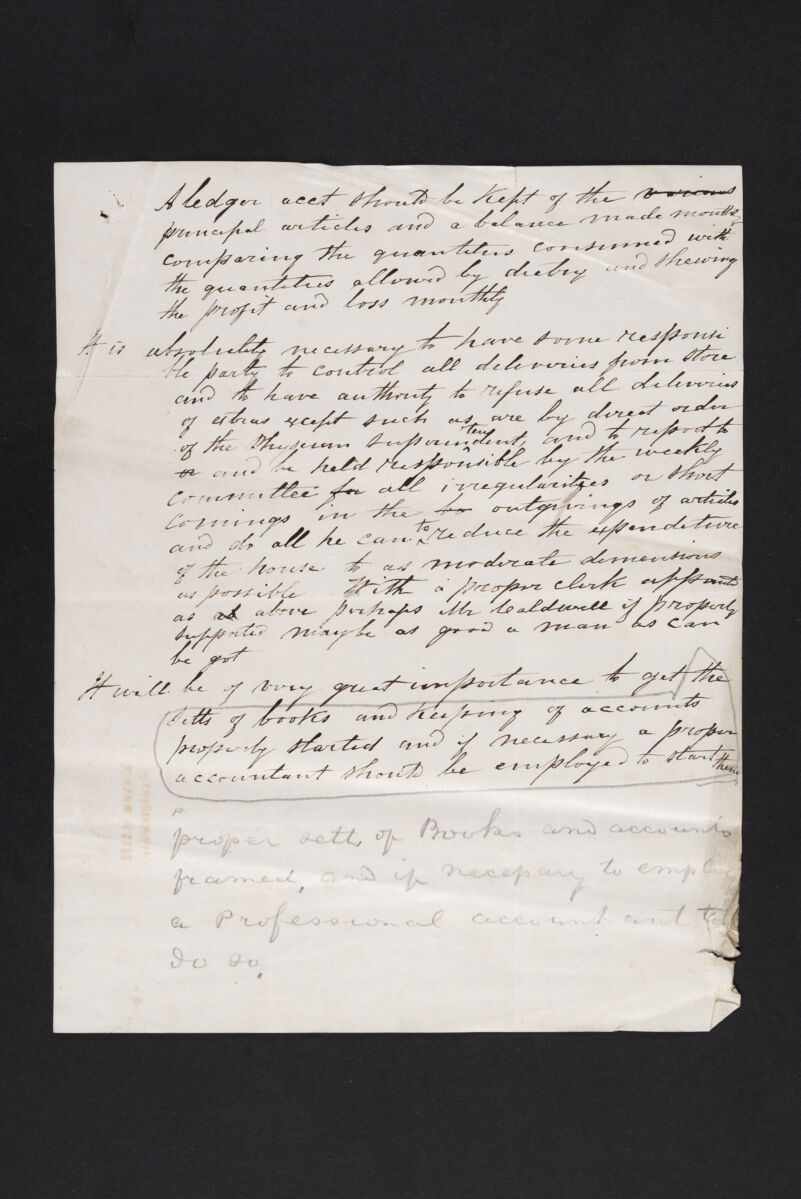 A ledger acct should be kept of the various
principal articles and a balance made monthly
comparing the quantities consumed with
the quantities allowed by dietry and shewing
the profit and loss monthly
It is absolutely necessary to have some responsi
ble party to control all deliveries from store
and to have authority to refuse all deliveries
of extras except such as are by direct order
of the Physician Superintendent, and to report to
or and be held responsible by the weekly
committee for all irregularities or short
comings in the outgivings of articles
and do all he can to reduce the expenditure
of the house to as moderate dimensions
as possible With a proper clerk appointed
as above perhaps Mr Caldwell if properly
supported maybe as good a man as can
be got
It will be of very great importance to get the
setts of books and keeping of accounts
properly started and if necessary a proper
accountant should be employed to start them
proper setts of Books and accounts
framed, and if necessary to employ
a Professional accountant to
do so.